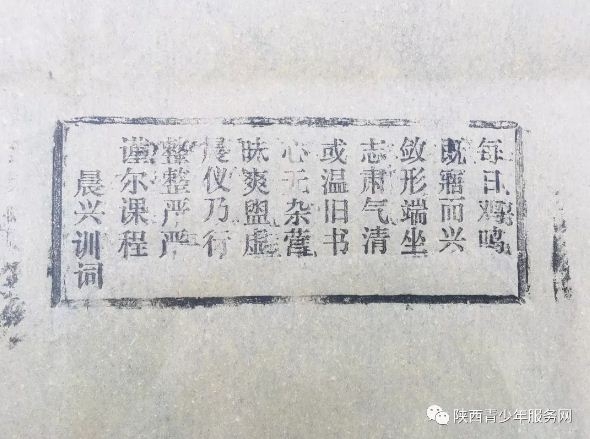 每日鸡鸣
既寤而兴
敛形端坐
志肃气清
或温旧书
心无杂营
昧爽盟虚
晨仪乃行
整整严严
谨尔课程
晨兴训词
陕西青少年服务网